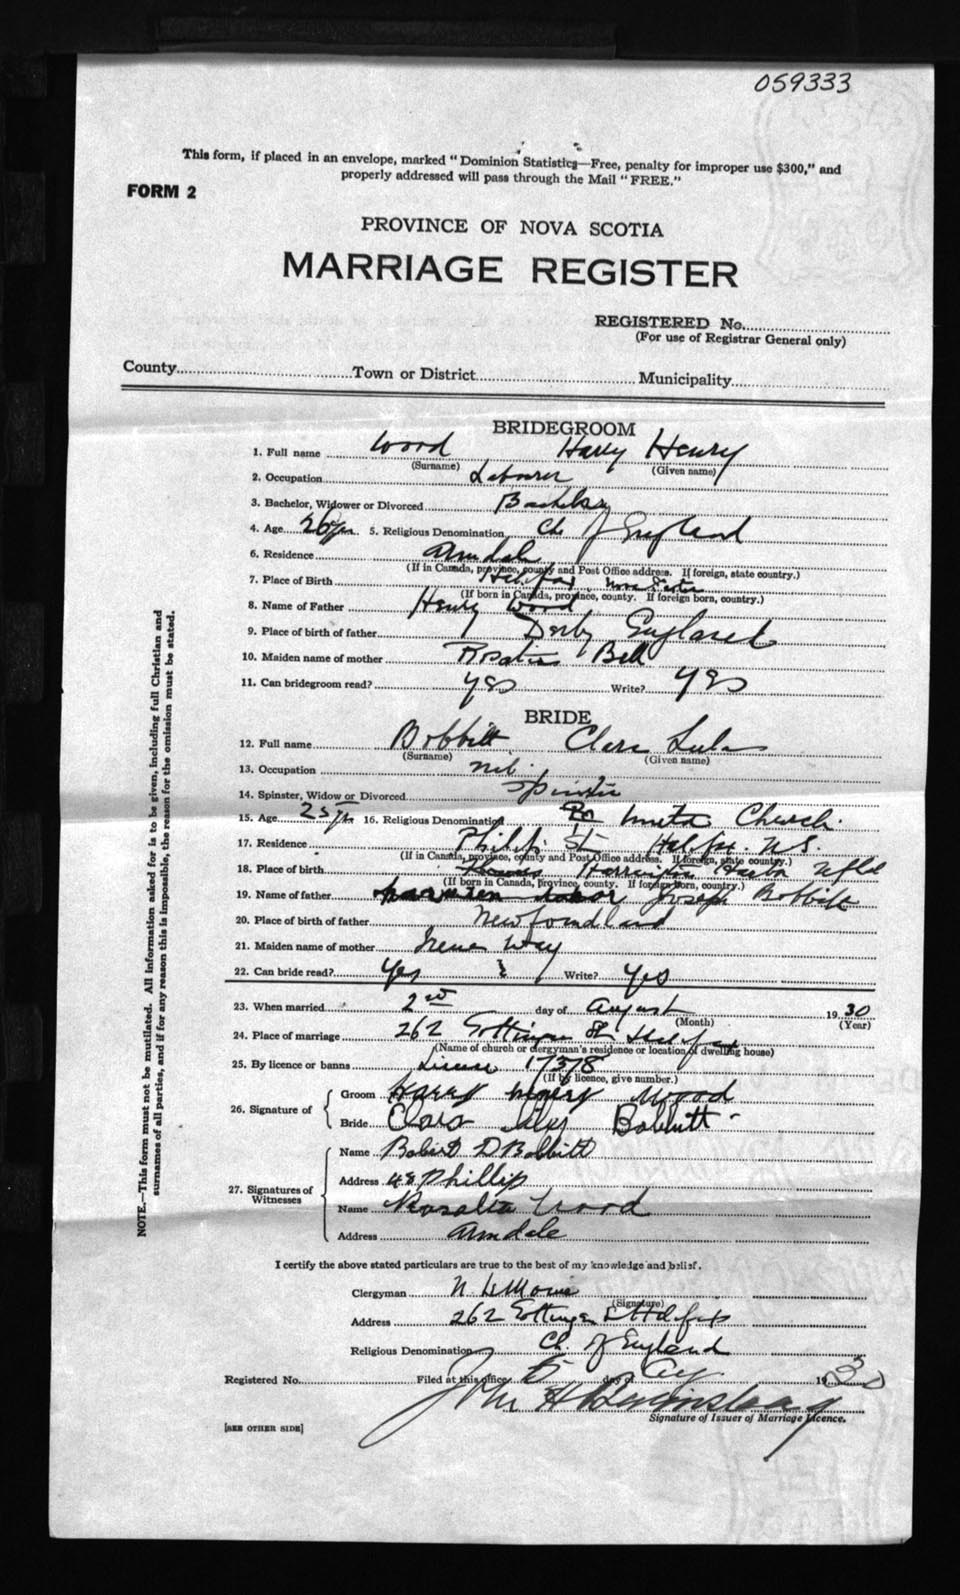 059333
This form, if placed in an envelope, marked "Dominion Statistics—Free, penalty for improper use $300," and
properly addressed will pass through the Mail "FREE."
FORM 2
PROVINCE OF NOVA SCOTIA
MARRIAGE REGISTER
REGISTERED No.
(For use of Registrar General only)
County Town or District Municipality
BRIDEGROOM
1. Full name Wood Harry Henry
(Surname) (Given name)
2. Occupation Labourer
3. Bachelor, Widower or Divorced Bachelor
4. Age 26 yrs 5. Religious Denomination Ch of England
6. Residence Armdale
(If in Canada, province, county and Post Office address. If foreign, state country.)
7. Place of Birth Halifax Nova Scotia
(If born in Canada, province, county. If foreign born, country.)
8. Name of Father Henry Wood
9. Place of birth of father Derby England
10. Maiden name of mother Bell
11. Can bridegroom read? yes Write? yes
BRIDE
12. Full name Bobbitt Clara Lula
(Surname) (Given name)
13. Occupation nil
14. Spinster, Widow or Divorced Spinster
15. Age 25 yrs 16. Religious Denomination United Church
17. Residence Philip St Halifax N.S.
(If in Canada, province, county and Post Office address. If foreign, state country.)
18. Place of birth Harrington Harbor Nfld
(If born in Canada, province, county. If foreign born, country.)
19. Name of father Joseph Bobbitt
20. Place of birth of father Newfoundland
21. Maiden name of mother Irene Way
22. Can bride read? Yes Write? Yes
23. When married 2nd day of August 1930
(Month) (Year)
24. Place of marriage 262 Gottingen St Halifax
(Name of church or clergyman's residence or location of dwelling house)
25. By licence or banns License 17378
(If by licence, give number.)
26. Signature of Groom Harry Henry Wood
Bride Clara Bobbitt
27. Signatures of Witnesses Name Robert D Bobbitt
Address 48 Phillip
Name Rosalia Wood
Address Armdale
I certify the above stated particulars are true to the best of my knowledge and belief.
Clergyman N LeMoine
(Signature)
Address 262 Gottingen St Halifax
Religious Denomination Ch. of England
Registered No. Filed at this office 5 day of Aug 1930
John H
Signature of Issuer of Marriage Licence.
[SEE OTHER SIDE]
NOTE.—This form must not be mutilated. All information asked for is to be given, including full Christian and
surnames of all parties, and if for any reason this is impossible, the reason for the omission must be stated.